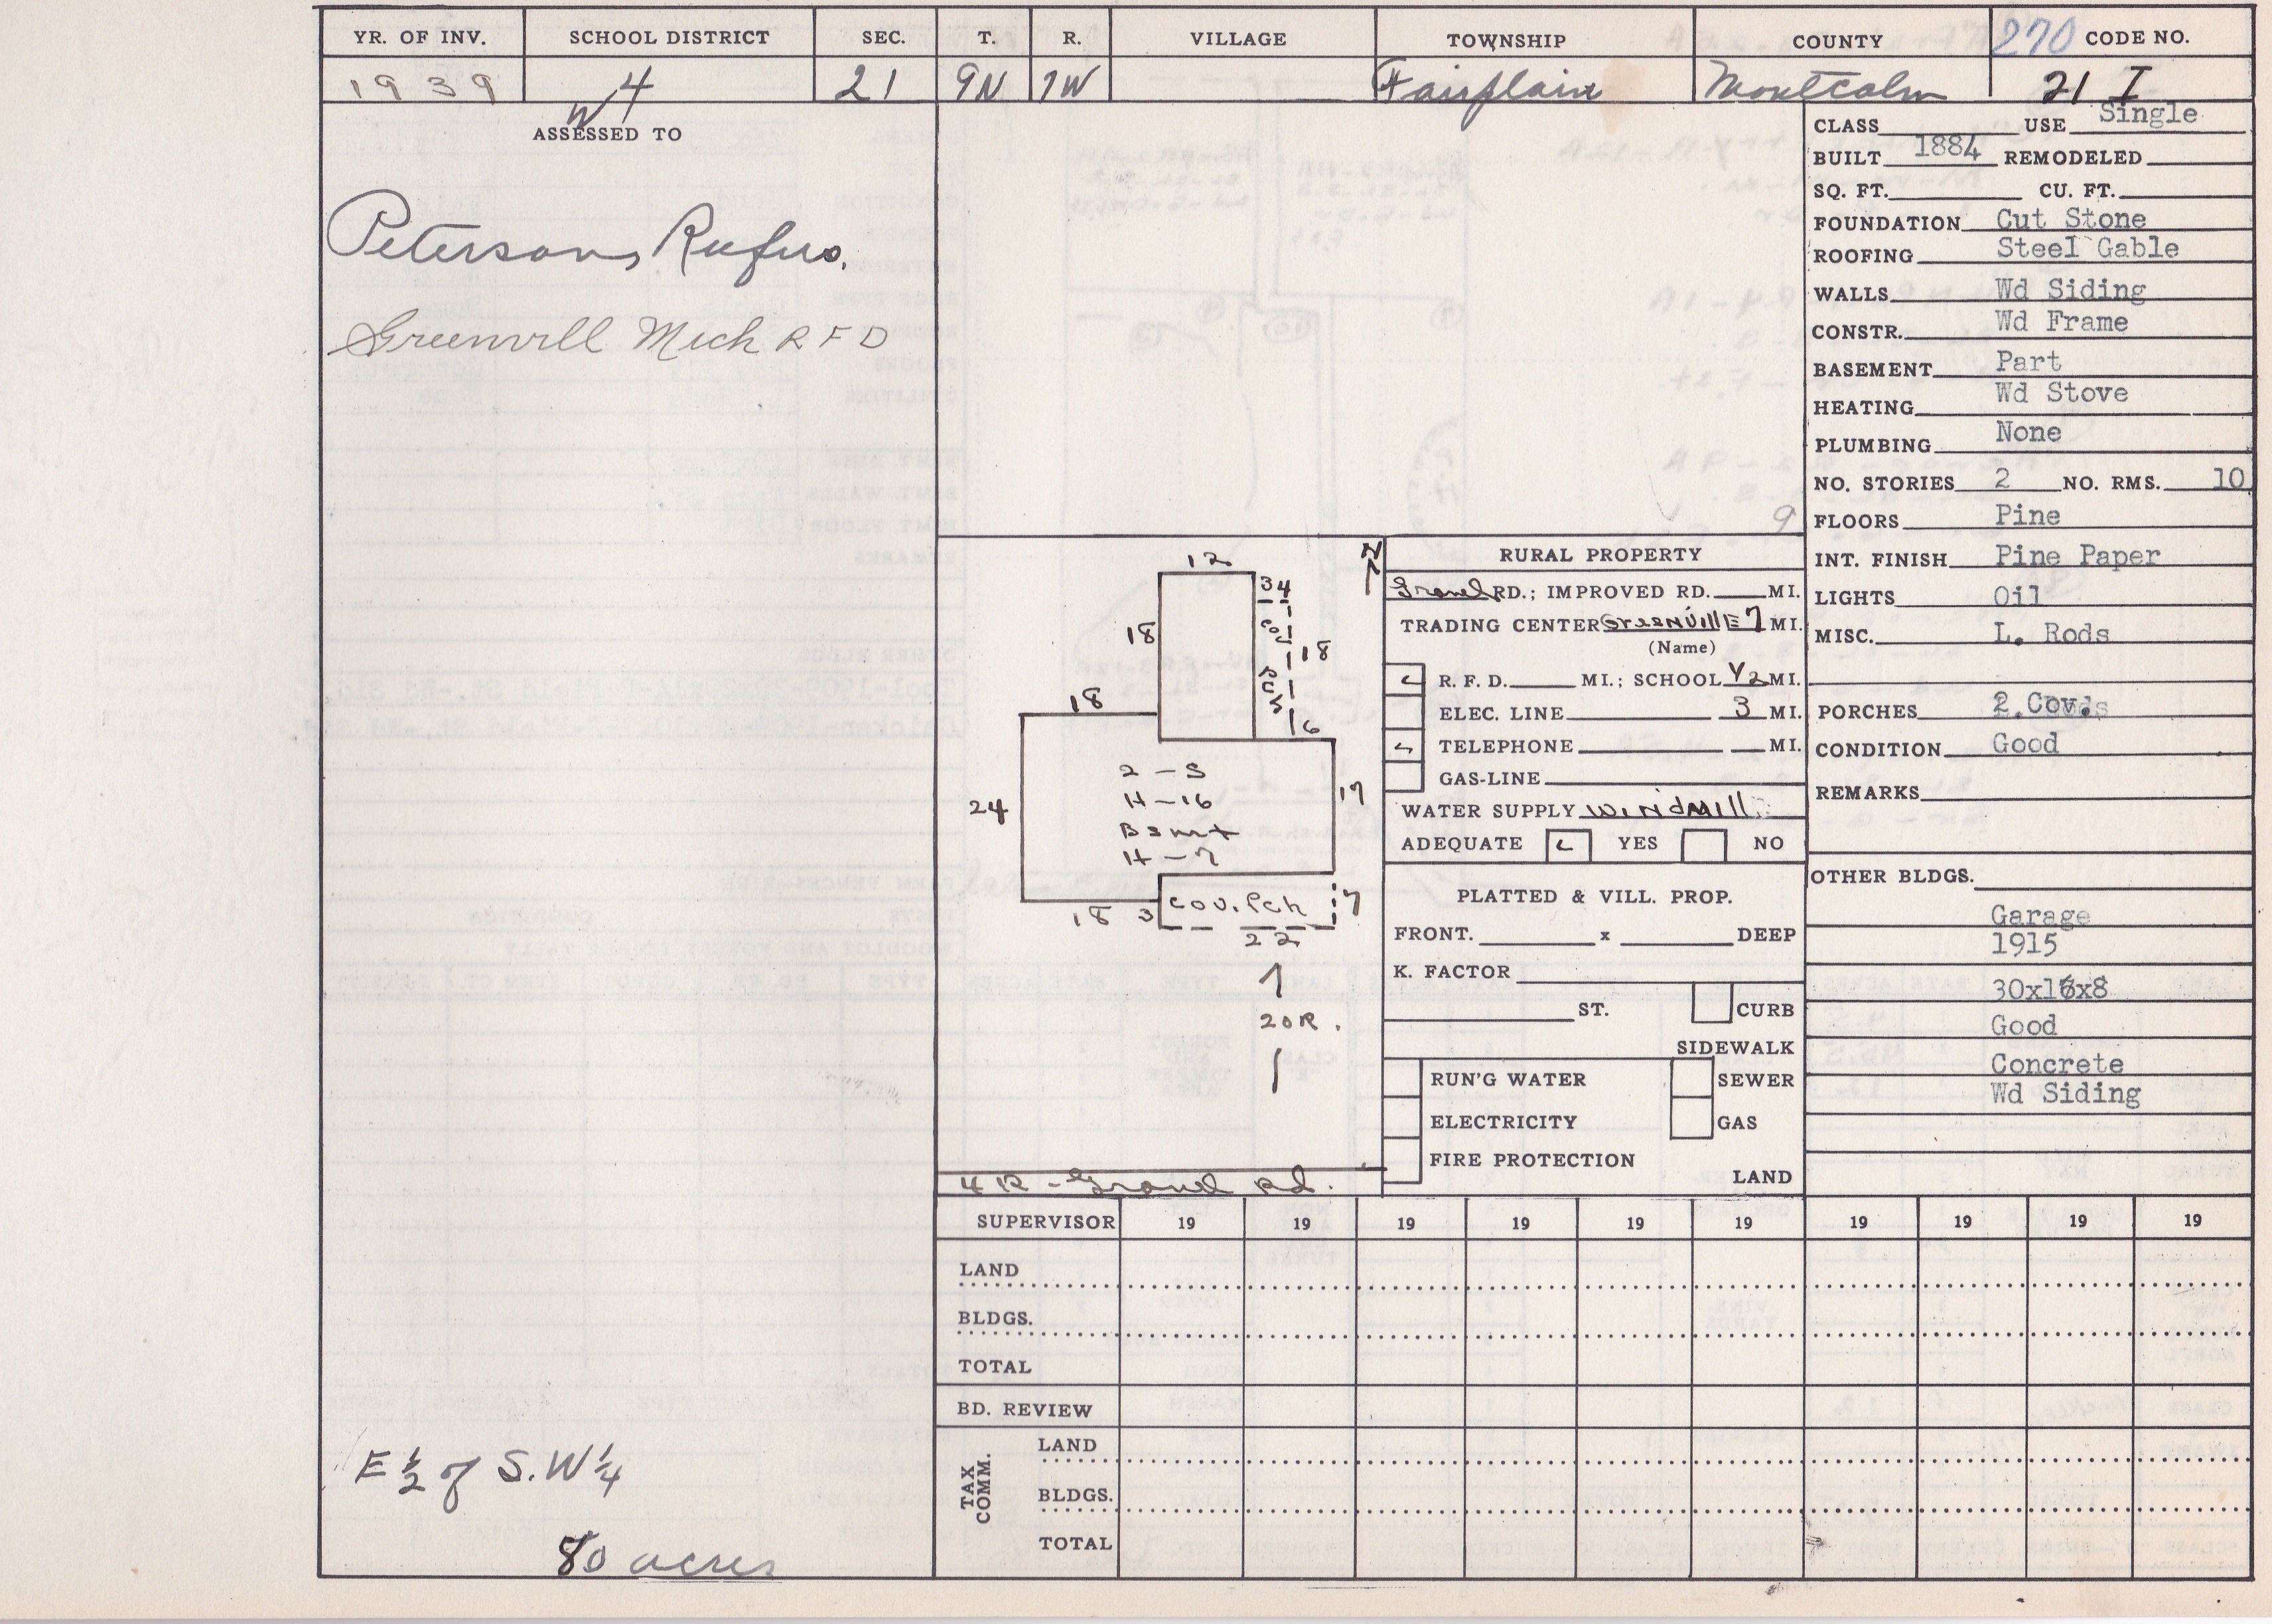 YR. OF INV. SCHOOL DISTRICT SEC. T. R. VILLAGE TOWNSHIP COUNTY 270 CODE NO.
1939 W4 21 9N 7W Fairplain Montcalm 21 I
ASSESSED TO
Peterson, Rufus.
Greenvill Mich R F D
E ½ of S.W ¼
80 acres
CLASS USE Single
BUILT 1884 REMODELED
SQ. FT. CU. FT.
FOUNDATION Cut Stone
ROOFING Steel Gable
WALLS Wd Siding
CONSTR. Wd Frame
BASEMENT Part
HEATING Wd Stove
PLUMBING None
NO. STORIES 2 NO. RMS. 10
9
FLOORS Pine
INT. FINISH Pine Paper
LIGHTS Oil
MISC. L. Rods
PORCHES 2 Cov.
CONDITION Good
REMARKS
OTHER BLDGS.
Garage
1915
30x16x8
Good
Concrete
Wd Siding
N
12
34
18
Cov
Pch
18
6
18
24
2-S
H-16
Bsmt
H-7
17
18 3 Cov. Pch 7
22
20R.
4 R - Gravel Rd.
RURAL PROPERTY
Gravel RD.; IMPROVED RD. MI.
TRADING CENTER Greenville 7 MI.
(Name)
R. F. D. MI.; SCHOOL ½ MI.
ELEC. LINE 3 MI.
TELEPHONE MI.
GAS-LINE
WATER SUPPLY Windmill
ADEQUATE YES NO
PLATTED & VILL. PROP.
FRONT. x DEEP
K. FACTOR
ST. CURB
SIDEWALK
RUN'G WATER SEWER
ELECTRICITY GAS
FIRE PROTECTION
LAND
SUPERVISOR 19 19 19 19 19 19 19 19 19 19
LAND
BLDGS.
TOTAL
BD. REVIEW
TAX COMM.
LAND
BLDGS.
TOTAL